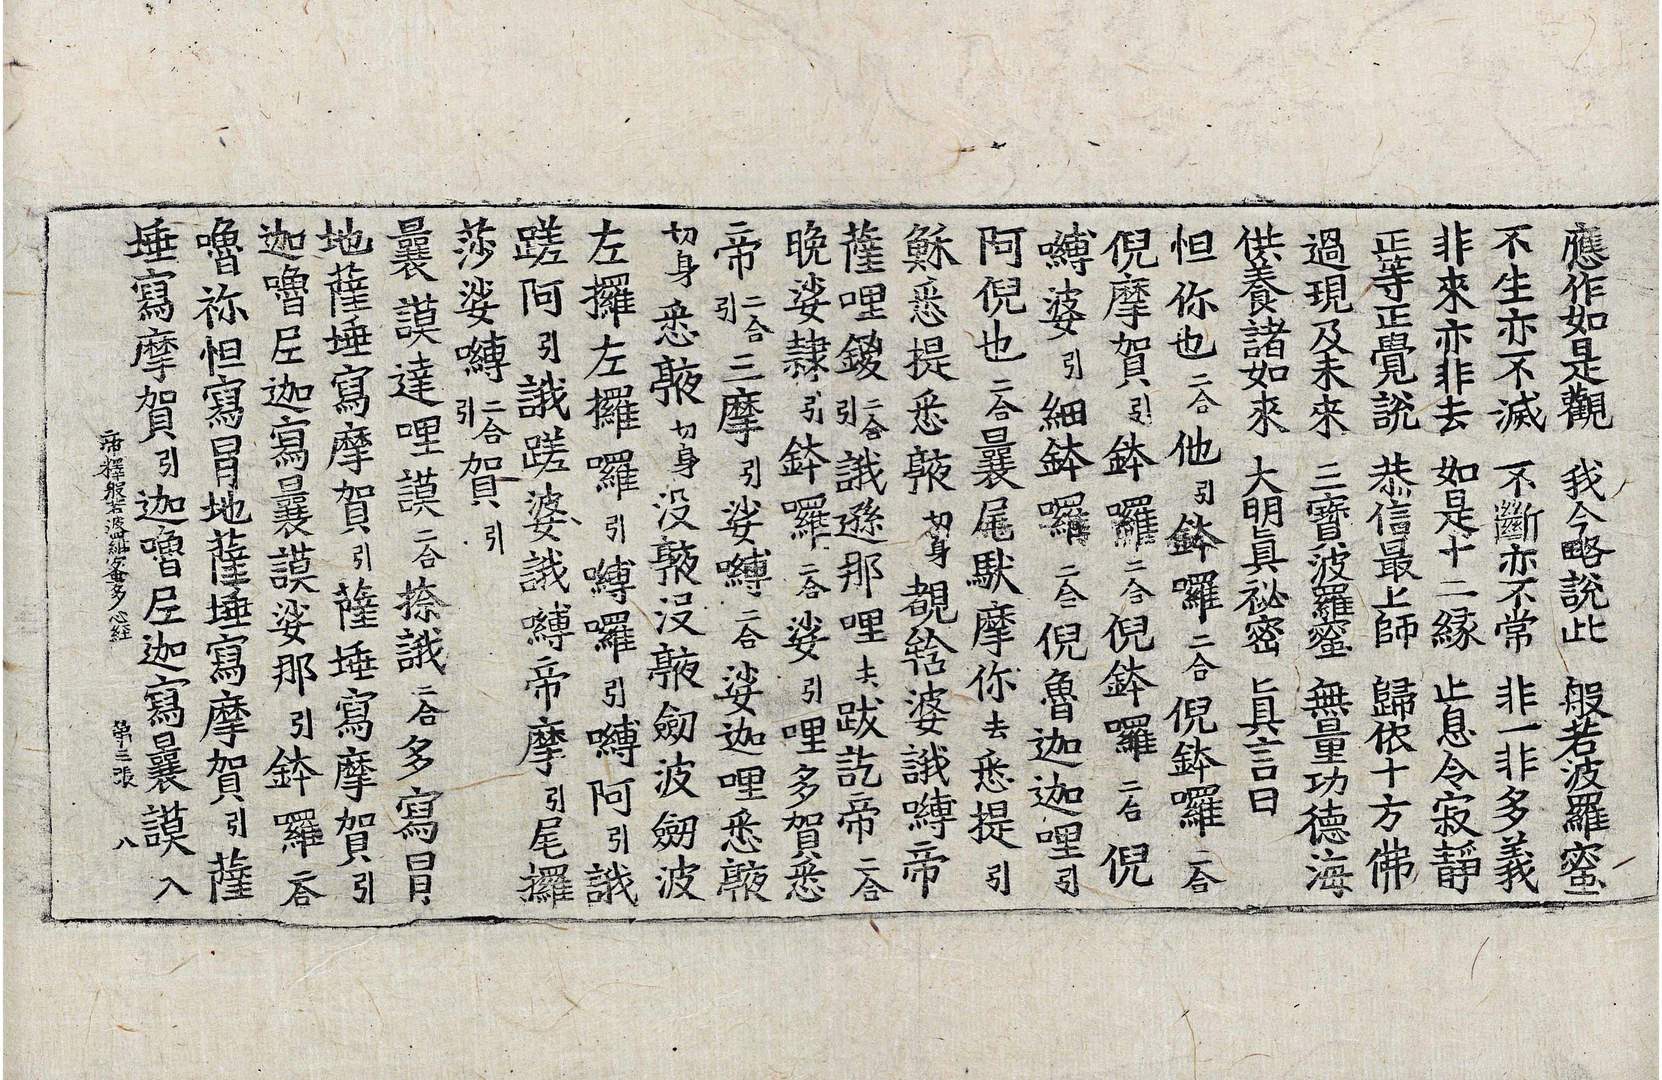 應作如是觀 我今略說此 般若波羅蜜
不生亦不滅 不斷亦不常 非一非多義
非來亦非去 如是十二緣 止息令寂靜
正等正覺說 恭信最上師 歸依十方佛
過現及未來 三寶波羅蜜 無量功德海
供養諸如來 大明眞祕密 眞言曰
怛你也二合他引鉢囉二合倪鉢囉二合
倪摩賀引鉢囉二合倪鉢囉二合倪
嚩婆引細鉢囉二合倪魯迦迦哩引
阿倪也二合曩尾馱摩你去悉提引
穌悉提悉𠶹切身覩𤚥婆誐嚩帝
薩哩鑁二合引誐遜那哩去跋訖帝二合
晚娑隷引鉢囉二合娑引哩多賀悉
帝二合引三摩引娑嚩二合娑迦哩悉𠶹
切身悉𠶹切身没𠶹没𠶹劒波劒波
左攞左攞囉引嚩囉引嚩阿引誐
蹉阿引誐蹉婆誐嚩帝摩引尾攞
莎娑嚩二合引賀引
曩謨達哩謨二合捺誐二合多寫冐
地薩埵寫摩賀引薩埵寫摩賀引
迦嚕尼迦寫曩謨娑那引鉢囉二合
嚕祢怛寫冐地薩埵寫摩賀引薩
埵寫摩賀引迦嚕尼迦寫曩謨入
帝釋般若波羅蜜多心經 第三張 八